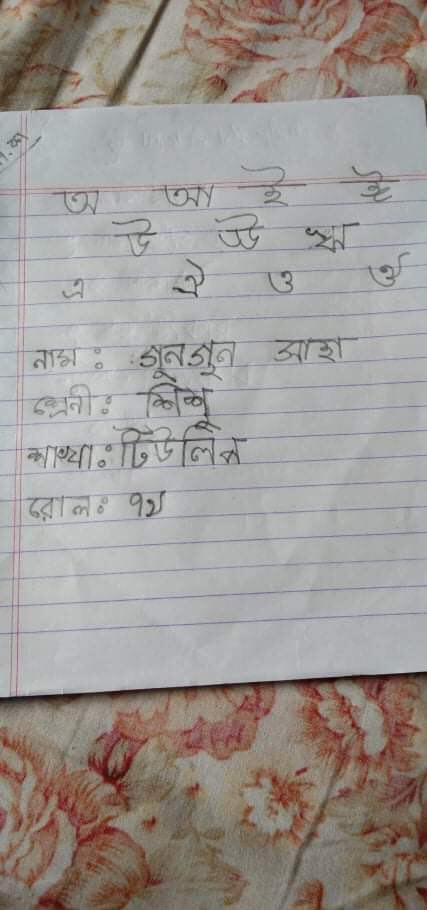 অ আ ই ঈ
উ ঊ ঋ
এ ঐ ও ঔ
নাম : গুনগুন সাহা
শ্রেনী: শিশু
শাখা: টিউলিপ
রোল: ৭২